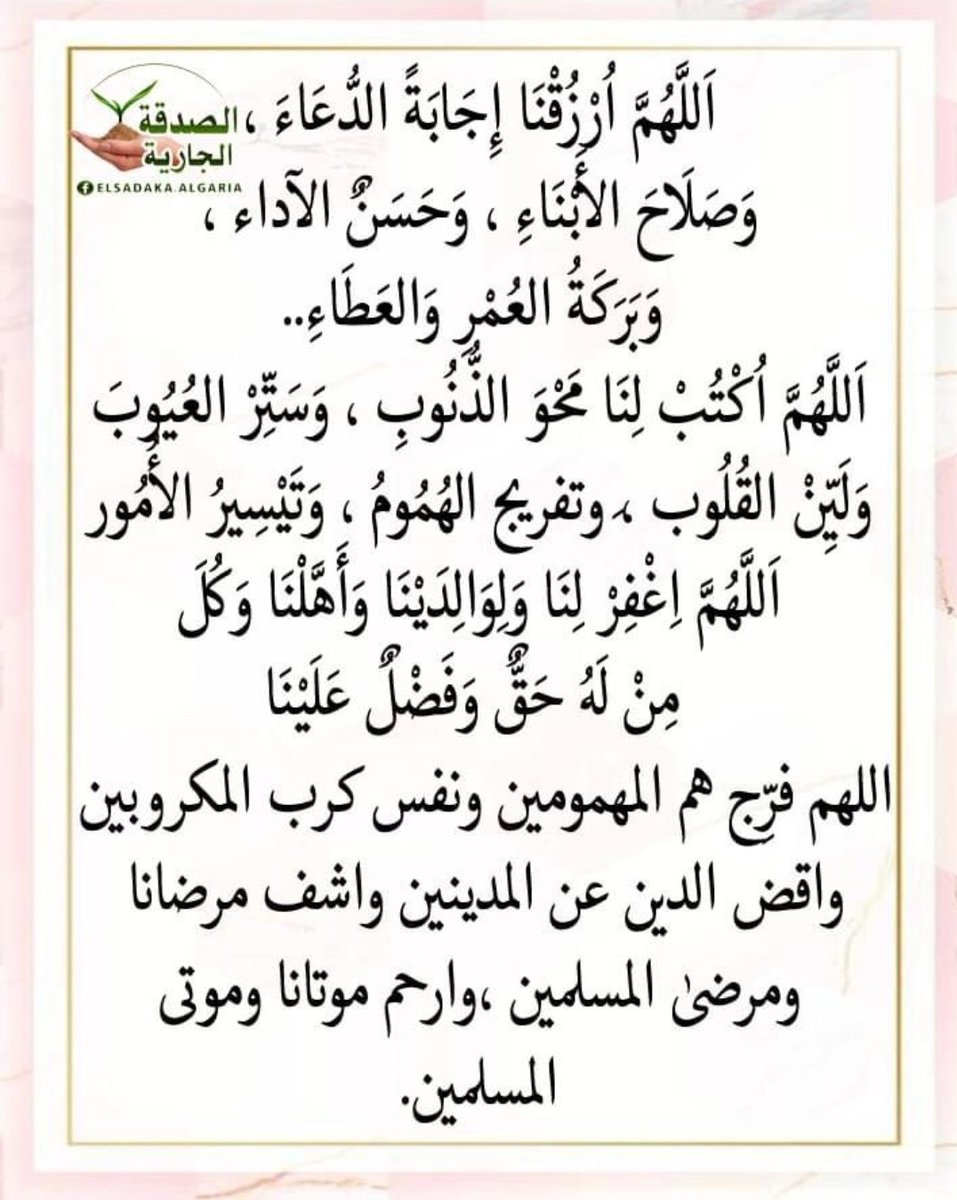 الصدقة
الجارية
ELSADAKA.ALGARIA
اَللَّهُمَّ اُرْزُقْنَا إِجَابَةً الدُّعَاءَ ،
وَصَلَاحَ الأَبْنَاءِ ، وَحَسَنٌ الآداء ،
وَبَرَكَةُ العُمْرِ وَالعَطَاءِ..
اَللَّهُمَّ اُكْتُبْ لِنَا مَحْوَ الذُّنُوبِ ، وَسَتِّرْ العُيُوبَ
وَلَيِّنْ القُلُوب ، وتفريج الهُمُومُ ، وَتَيْسِيرُ الأُمُور
اَللَّهُمَّ اِغْفِرْ لِنَا وَلِوَالِدَيْنَا وَأَهَّلْنَا وَكُلَ
مِنْ لَهُ حَقٌّ وَفَضْلٌ عَلَيْنَا
اللهم فرِّج هم المهمومين ونفس كرب المكروبين
واقض الدين عن المدينين واشف مرضانا
ومرضىٰ المسلمين ،وارحم موتانا وموتى
المسلمين.